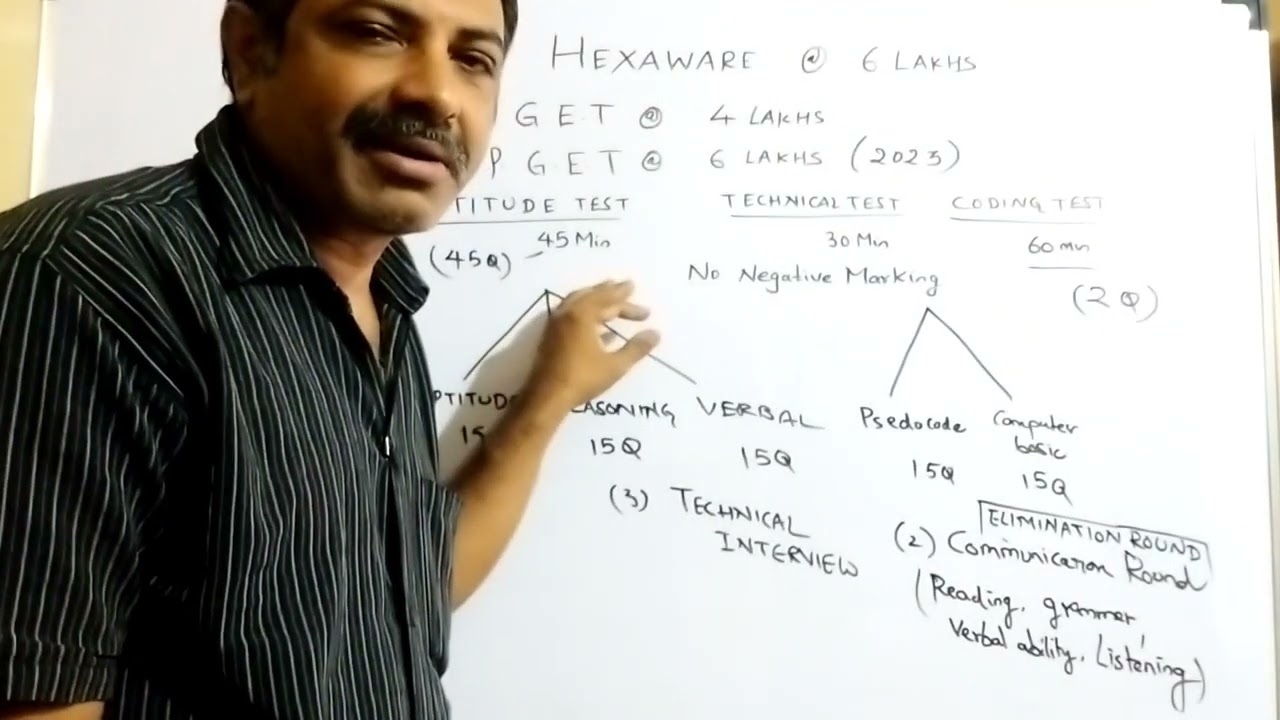 HEXAWARE @ 6 LAKHS
G E T @ 4 LAKHS
P G E T @ 6 LAKHS (2023)
TITUDE TEST TECHNICAL TEST CODING TEST
(45Q) 45 Min 30 Min 60 mn
No Negative Marking (2Q)
PTITUD ASONING VERBAL Psedocode Computer basic
15 15Q 15Q 15Q 15Q
(3) TECHNICAL
INTERVIEW
ELIMINATION ROUND
(2) Communication Round
(Reading, grammer,
Verbal ability, Listening)